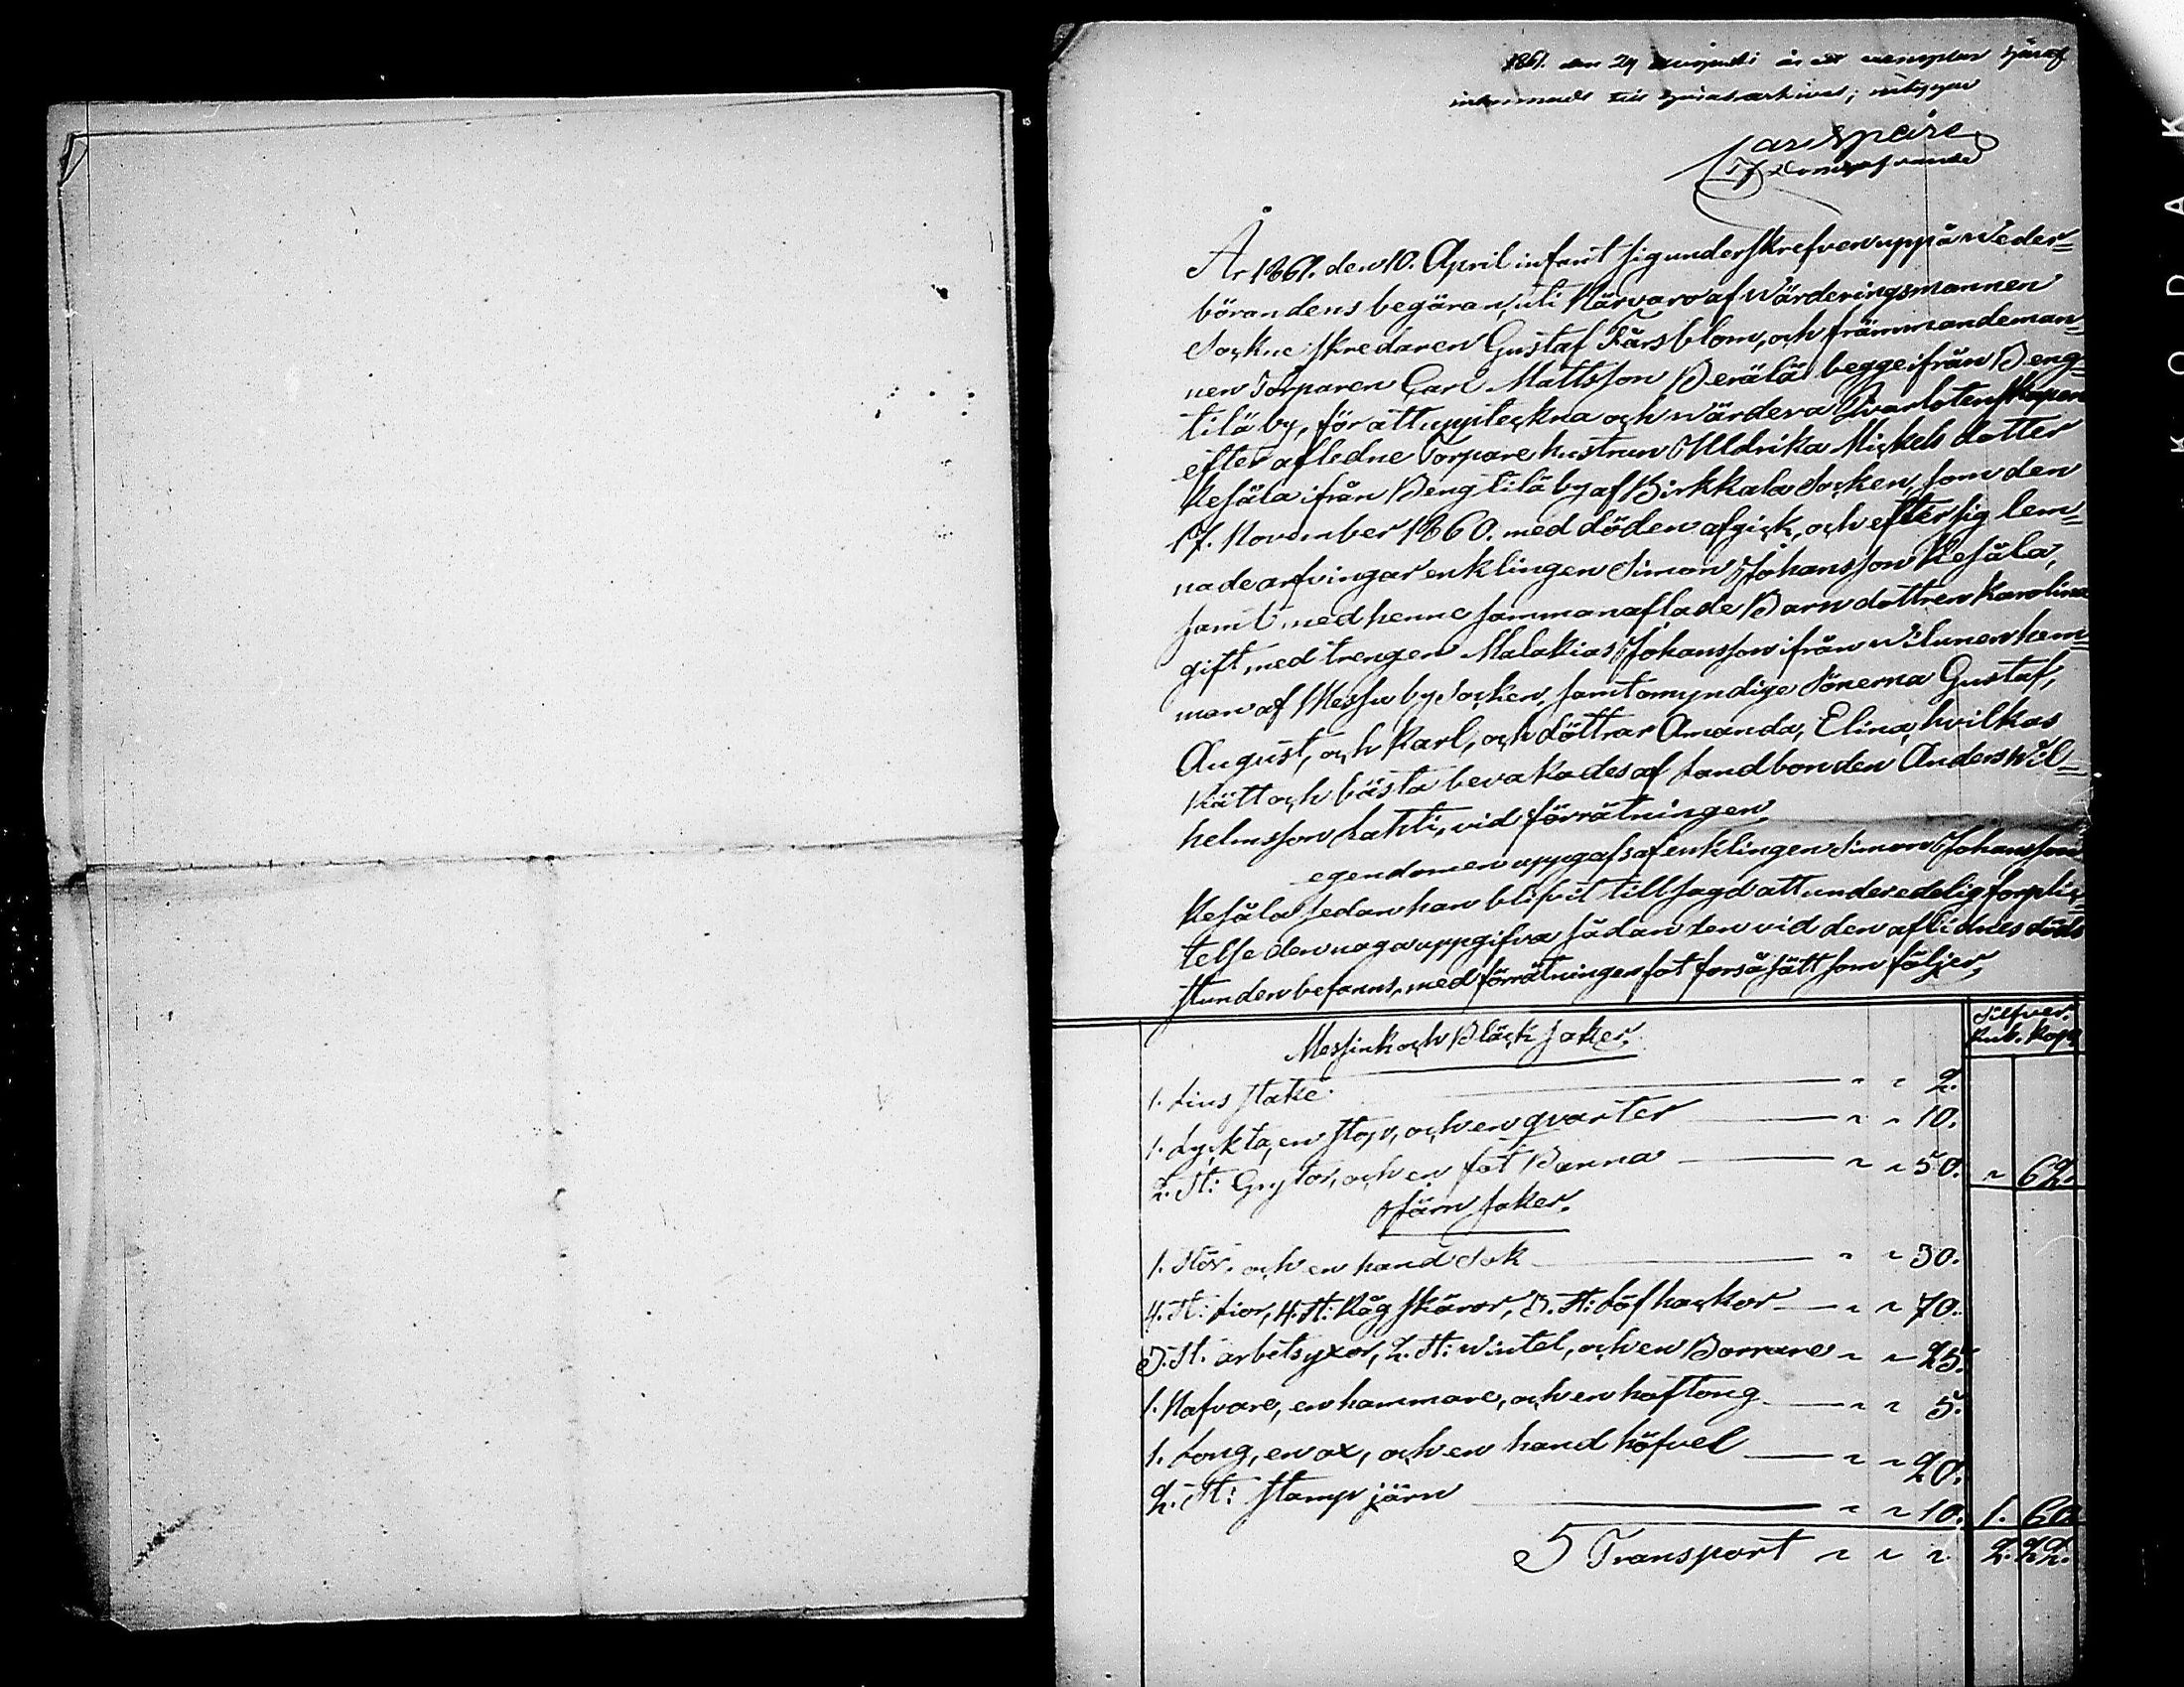 1861. den 29 Augusti är ett exemplar häraf
inlemnadt till häradsarkivet; intygar
Lars Speire
Domhafvande
År 1861. den 10. April infant sig underskrefven uppå weder=
börandens begäran, uti Närvaro af wärderingsmannen
Sockne skredaren Gustaf Färsblom, och främmandeman=
nen Torparen Carl Mattsson Berälä begge ifrån Beng=
tilä by, för att uppteckna och wärdera Qvarlotenskapen
efter afledne Torpare hustrun Uldrika Mickels dotter
Kesäla ifrån Bengtilä by af Birkkala Socken, som den
17. November 1860. med döden afgick, och efter sig lem=
nade arfvingar enklingen Simon Johansson Kesäla,
samt med henne sammanaflade Barn dottren Karolina
gift med trengen Malakias Johansson ifrån wilunen hem=
man af Messuby Socken, samt omyndige Sönerna Gustaf,
August, och Karl, och döttrar Amanda, Elina, hvilkas
Rätt och bästa bevakades af Landbonden Anders Wil=
helmsson Lahti, vid förrätningen,
egendomen uppgafs af enklingen Simon Johansson
Kesäla sedan han blifvit tillsagd att under edelig förplic=
telse den noga uppgifva sådan den vid den aflidnes döds
stunden befanns, med förrätningen fot forså sätt som följer,
Silfver.
Rub. Kop.
Messink och Bläck saker.
1. Lius stake " " 2.
1. Lyckta, en stop, och en qvarter " " 10.
2. St: Grytor, och en fat Panna " " 50. " 62.
Järn saker.
1. Stör, och en hand Sok " " 30.
4. St: Lior, 4. St: Råg skäror, 3. St: Löf hackor " " 70.
3. St. arbetsyxor, 2. St: wintel, och en Borrare " " 25.
1. Nafvare, en hammare, och en hoftong " " 5.
1. Tong, en ax, och en hand höfvel " " 20.
2. St: Stamp järn " " 10. 1. 60.
Transport " " " 2. 22.
KODAK